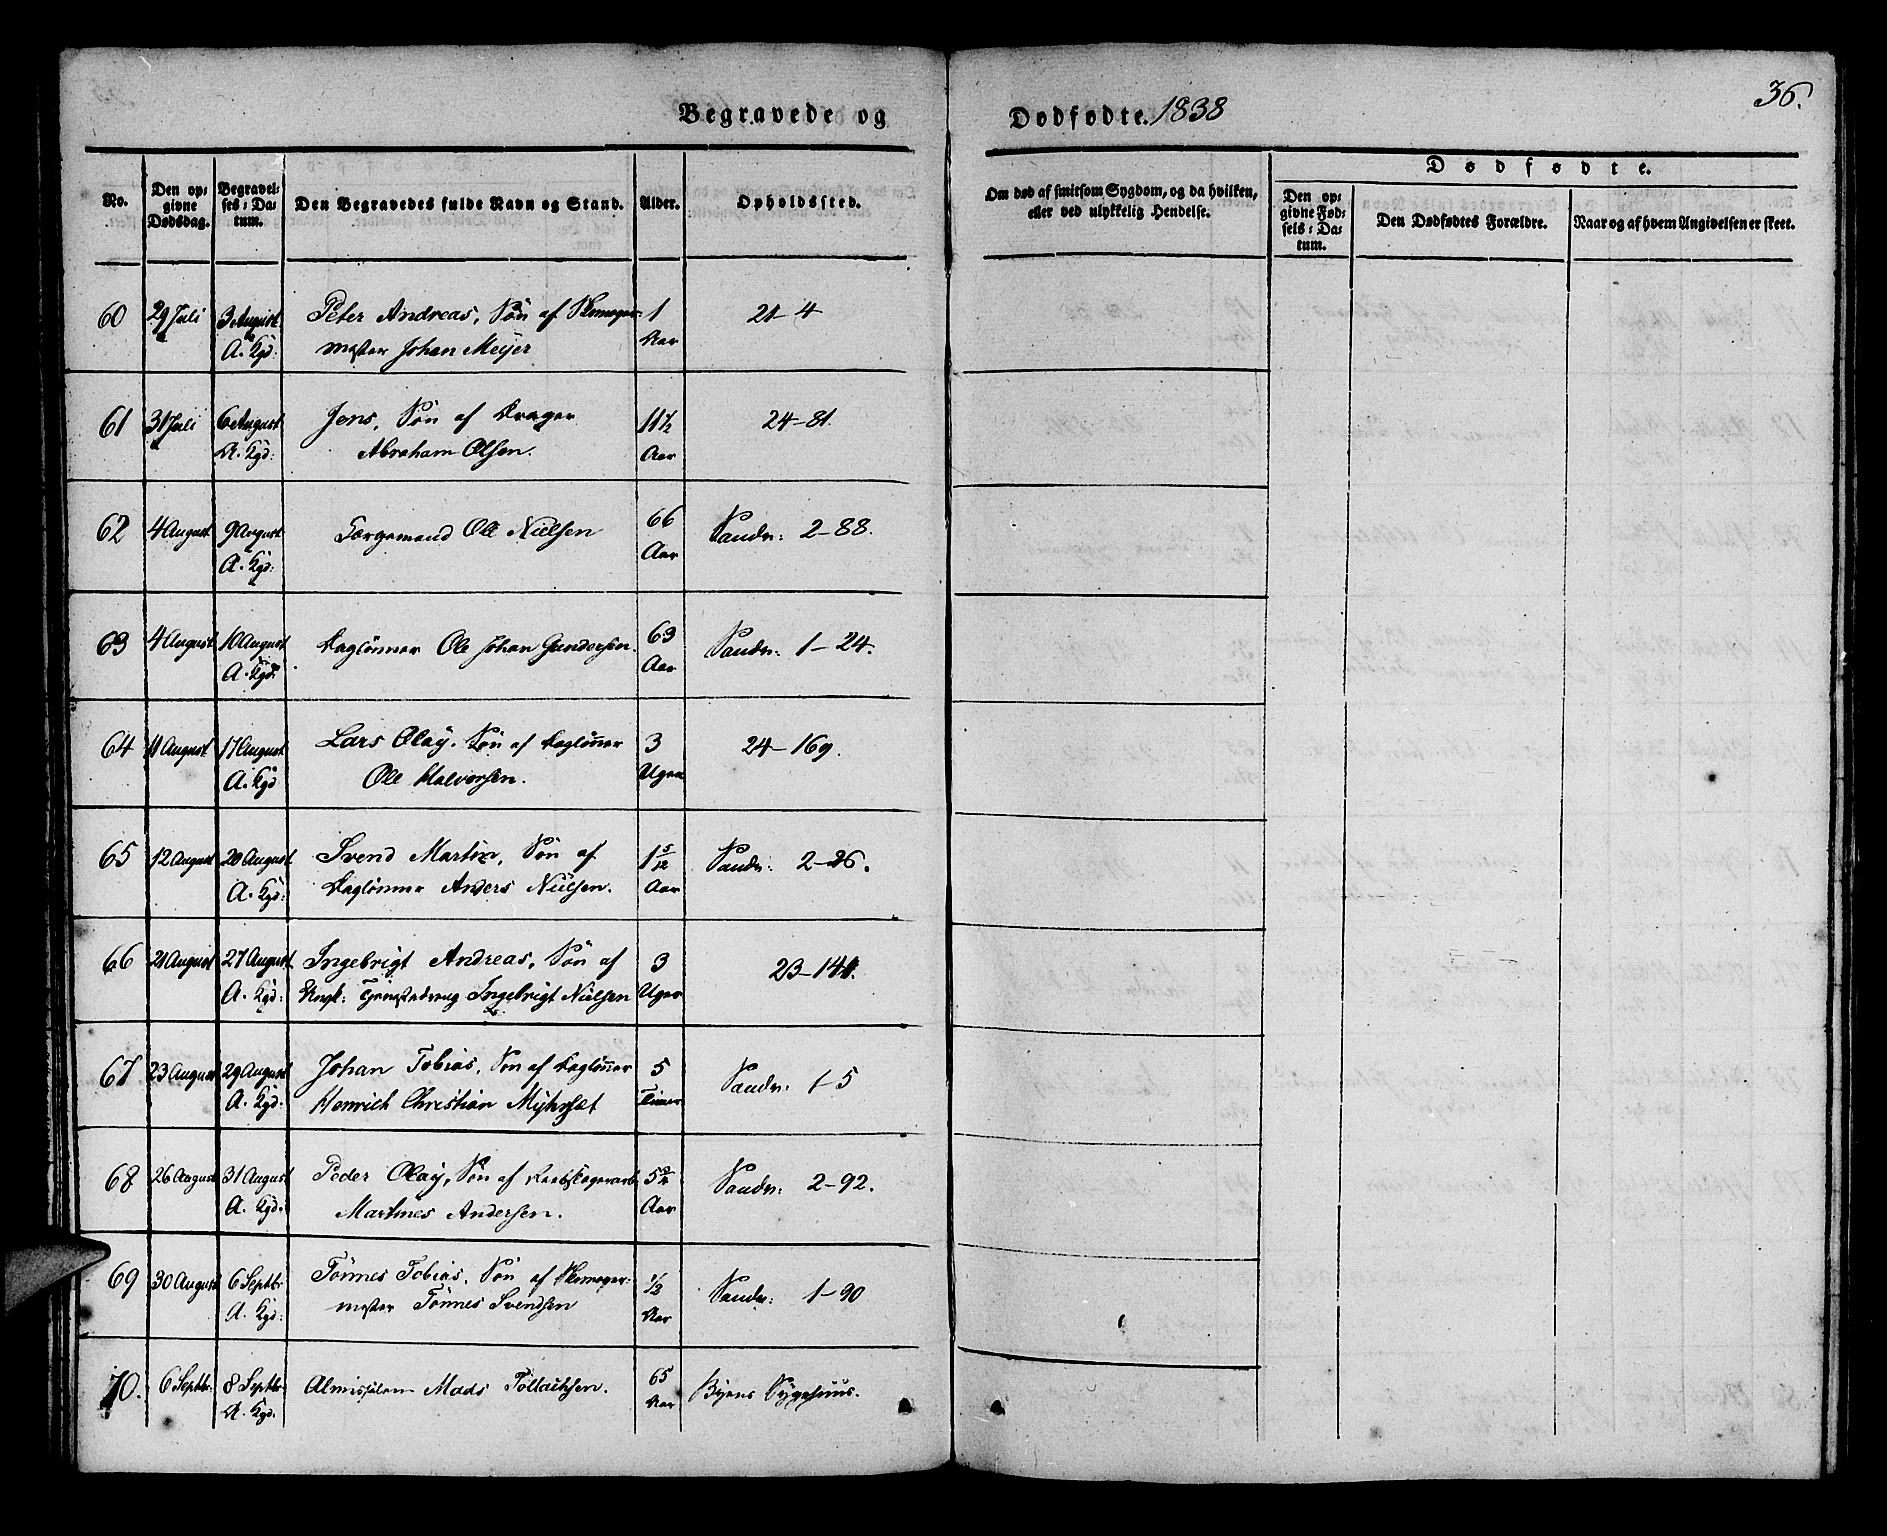 Begravede og Dødfødte. 1838
36.
No.
Den op:
givne
Dødsdag.
Begravel:
ses: Da:
tum.
Den Begravedes fulde Navn og Stand.
Alder.
Opholdssted.
Om død af smitsom Sygdom, og da hvilken,
eller ved ulykkelig Hendelse.
Dødfødte.
Den op:
givne Fød:
sels: Da:
tum.
Den Dødfødtes Forældre.
Naar og af hvem Angivelsen er skeet.
60 29 Juli 3 August Peter Andreas, Søn af Skomager: 1 21-4
A. Kgd: mester Johan Meyer Aar
61 31 Juli 6 August Jens, Søn af Drager 11½ 24-81.
A. Kgd: Abraham Olsen. Aar
62 4 August 9 August Færgemand Ole Nielsen 66 Sandv: 2-88.
A. Kgd: Aar
63 4 August 10 August Daglønner Ole Johan Gundersen. 69 Sandv: 1-24.
A. Kgd: Aar
64 11 August 17 August Lars Olay. Søn af Daglønner 3 24-169.
A. Kgd Ole Halvorsen. Uger
65 12 August 20 August Svend Martin, Søn af 1 5/12 Sandv: 2-26.
A. Kgd: Daglønner Anders Nielsen. Aar
66 21 August 27 August Ingebrigt Andreas, Søn af 3 23-141.
A. Kgd: Ingebrigt Nielsen Uger
67 23 August 29 August Johan Tobias, Søn af Daglønner 5 Sandv: 1-5
A. Kgd. Henrich Christian Myhrset Timer
68 26 August 31 August Peder Olay, Søn af Reebslagerarb. Sandv: 2-92.
A. Kgd. Martines Andersen. Aar
69 30 August 6 Septbr Tönnes Tobias, Søn af Skomager: 1/2 Sandv: 1-90
A. Kgd: mester Tönnes Svendsen Aar
70. 6 Septbr. 8 Septbr Almisselem Mads Tollachsen. 65 Byens Sygehuus.
A. Kgd. Aar